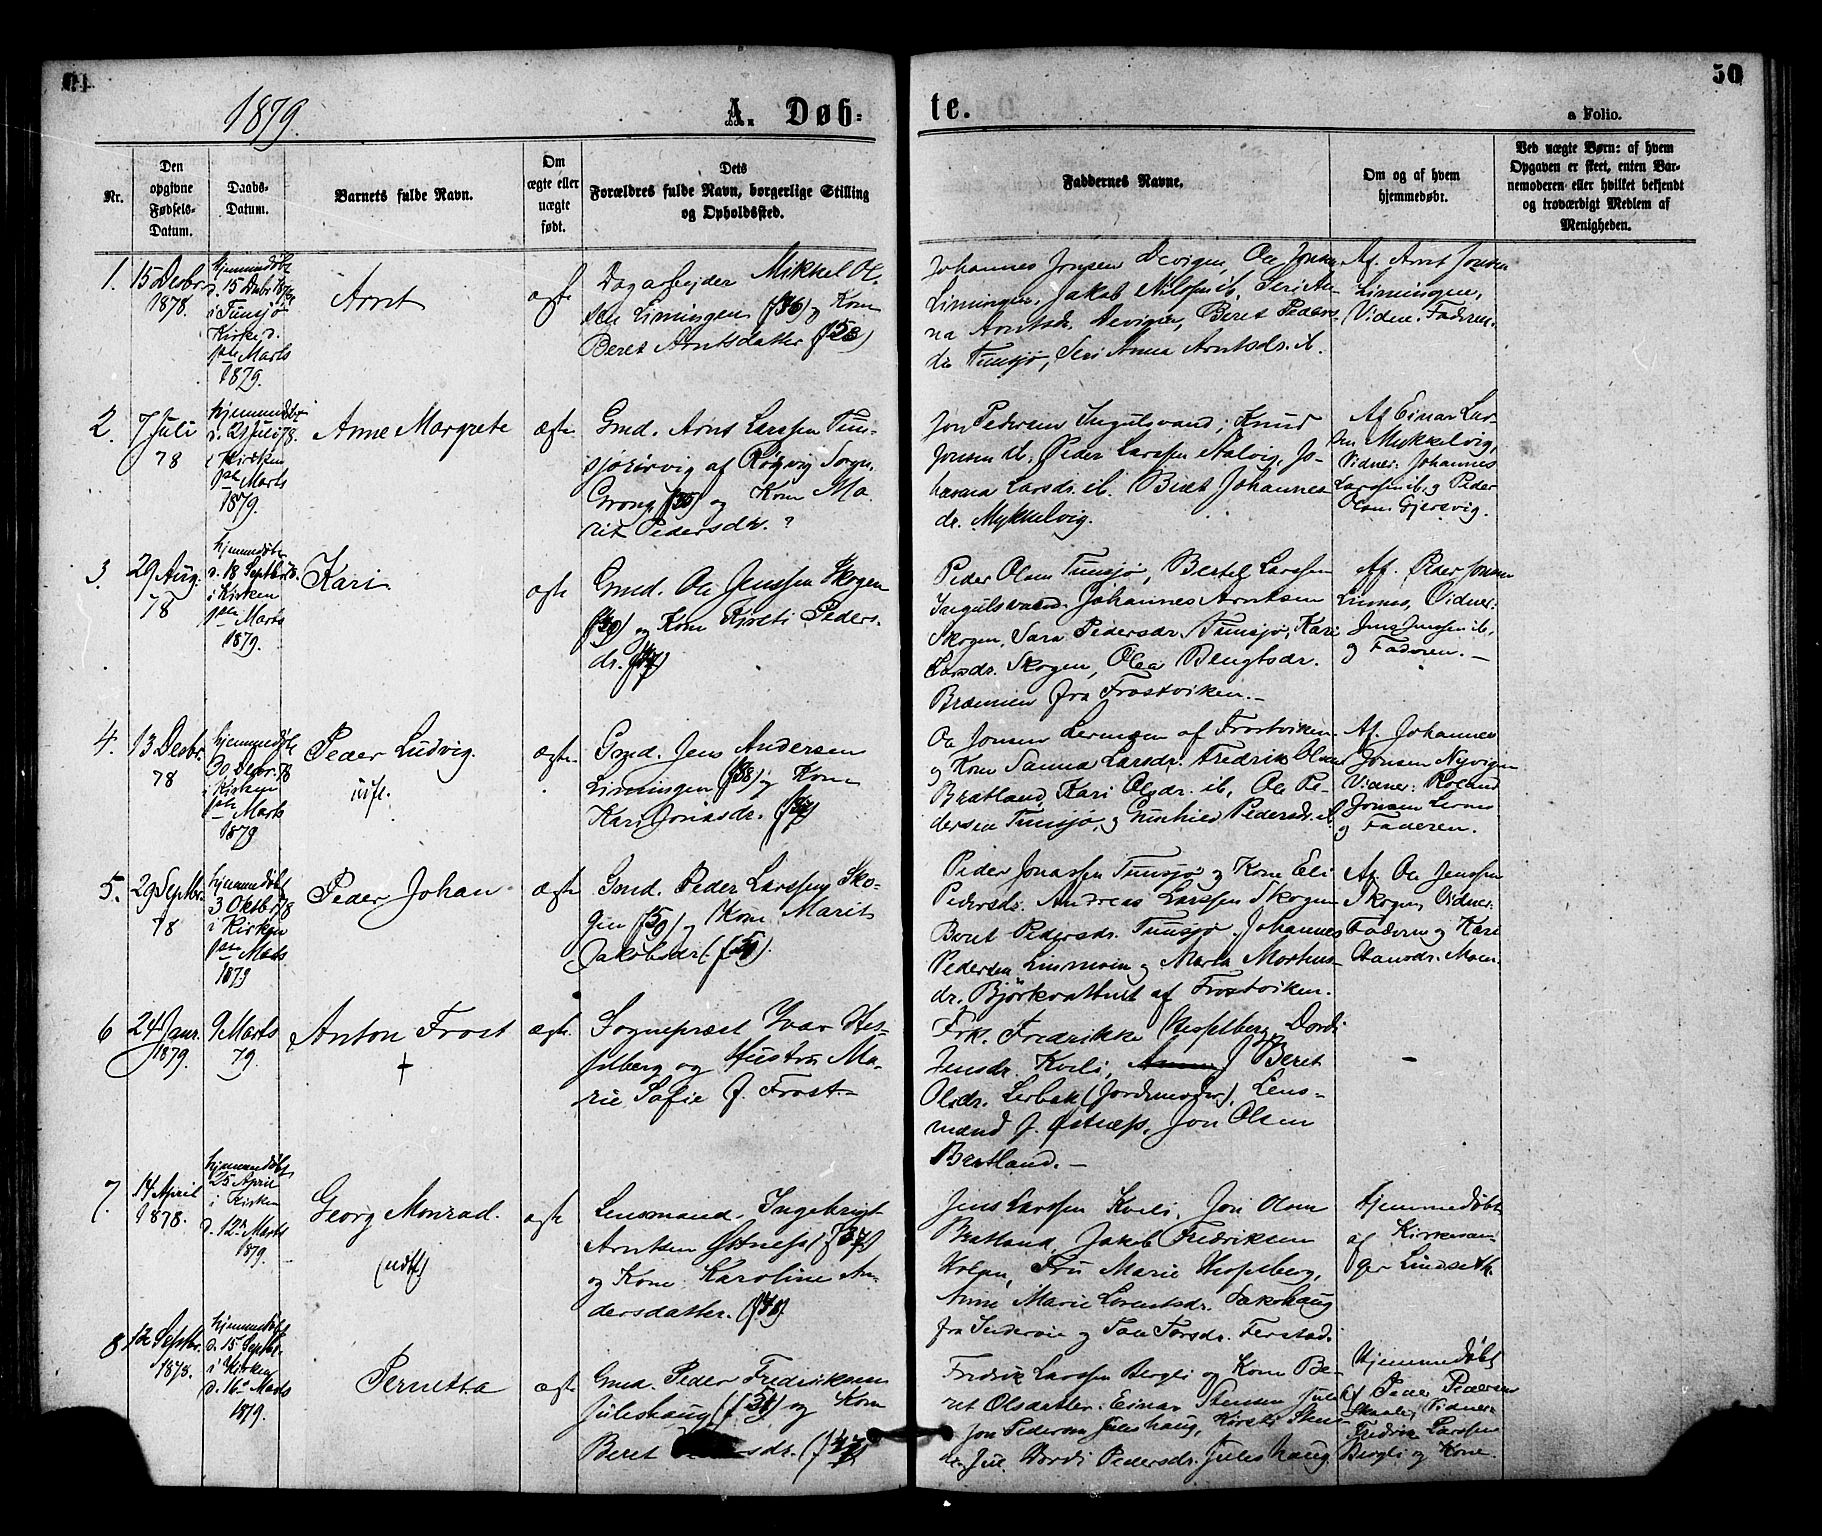 50
1879.
A. Døb-
te.
a Folio.
Nr.
Den
opgivne
Fødsels-
Datum.
Daabs-
Datum.
Barnets fulde Navn.
Om
ægte eller
uægte
født.
Dets
Forældres fulde Navn, borgerlige Stilling
og Opholdssted.
Faddernes Navne.
Om og af hvem
hjemmedøbt.
Ved uægte Børn: af hvem
Opgaven er skeet, enten Bar-
nemoderen eller hvilket bekjendt
og troværdigt Medlem af
Menigheden.
1.
15 Decbr.
1878.
hjemmedøbt
d. 15 Decbr 1878
i Tunsjø
Kirke d.
9de Marts
1879.
Arnt
ægte
Dagarbejder Mikkel Ol-
sen Limingen (f36) og Kone
Beret Arntsdatter (f53)
Johannes Jonsen Devigen, Ole Jonsen
Limingen, Jakob Nilsen ib, Seri An-
na Arntsdr. Devigen, Beret Peders-
dr. Tunsjø, Seri Anna Arntsdr. ib.
Af. Arnt Jonsen
Limingen,
Vidne: Faderen.
2.
7 Juli
78
hjemmedøbt
d. 21 Juli 78.
i Kirken
9de Marts
1879.
Anne Margrete
ægte
Gmd. Arnt Larssen Tun-
sjørørvig af Røyrvig Sogn,
Grong (f35) og Kone Ma-
rit Pedersdr. ?
Jon Pedersen Ingulsvand, Knud
Jonsen ib, Peder Larssen Stalvig, Jo-
hanna Larsdr. ib. Beret Johannes-
dr. Mykkelvig.
Af Einar Lar-
sen Mykkelvig,
Vidner: Johannes
Larssen ib. og Peder
Olsen Gjersvig.
3.
29 Aug.
78
hjemmedøbt
d. 18 Septbr 78.
i Kirken
9de Marts
1879.
Kari
ægte
Gmd. Ole Jenssen Skogen
(f39) og Kone Kirsti Peders-
dr. (f47)
Peder Olsen Tunsjø, Bertel Larssen
Ingulsvand. Johannes Arntsen
Skogen, Sara Pedersdr. Tunsjø, Kari
Larsdr. Skogen, Olea Bengtsdr.
Brænnen fra Frostviken.
Af. Peder Jonsen
Linnes, Vidner:
Jens Jenssen ib,
og Faderen.
4.
13 Decbr.
78
hjemmedøbt
30 Decbr. 78
i Kirken
9de Marts
1879
Peder Ludvig.
ægte
Gmd. Jens Andersen
Limingen (f38) og Kone
Kari Joriasdr. (f37)
Ole Jonsen Lermoen af Frostviken
og Kone Sanna Larsdr. Fredrik Olsen
Bratland, Kari Olsdr. ib, Ole Pe-
dersen Tunsjø, og Gunhild Pedersdr. ib
Af. Johannes
Jonsen Nyvigen
Vidner: Roland
Jonsen Linnes
og Faderen.
5.
29 Septbr.
78
hjemmedøbt
3 Oktbr 78
i Kirken
9de Marts
1879
Peder Johan
ægte
Gmd. Peder Larssen Sko-
gen (f39) og Kone Marit
Jakobsdr.
Peder Jonassen Tunsjø og Kone Eli
Pedersdr. Andreas Larssen Skogen
Beret Pedersdr. Tunsjø, Johannes
Pedersen Linmoin og Maria Mortens-
dr. Björkvattnet af Frostviken.
Af Ole Jenssen
Skogen, Vidner:
Faderen og Kari
6
24 Janr.
1879.
9 Marts
79.
Anton Frost
+
ægte
Sognepræst Ivar Hes-
selberg og Hustru Ma-
rie Sofie f. Frost.
Frk. Fredrikke Hesselberg, Dordi
Jensdr. Kveli, Beret
Olsdr. Lerbak (Jordemoder), Lens-
mand J. Østnæss, Jon Olsen
Bratland.
7.
14 April
1878.
hjemmedøbt
25 April
i Kirken
d. 12te Marts
1879.
Georg Monrad.
ægte
Lensmand. Ingebrigt
Arntsen Østnæss (f37)
og Kone Karoline An-
dersdatter. (f48).
Jens Larssen Kveli, Jon Olsen
Bratland, Jakob Fredriksen
Holen, Fru Marie Hesselberg,
Anne Marie Lorentsdr. Sakshaug
fra Inderøe og Tordsdr. Ferstad.
Hjemmedøbt
af Kirkesan-
ger Lindseth.
8
12 Septbr.
1878.
hjemmedøbt
d. 15 Septbr.
i Kirken
d. 16de Marts
1879.
Pernetta
ægte
Gmd. Peder Fredriksen
Juleshaug (f51) og Kone
Beret
Fredrik Larssen Bergli og Kone Be-
ret Olsdatter. Einar Stensen Jule,
Jon Pedersen Juleshaug, Kirsti Stens-
dr. Jule. Dordi Pedersdr. Juleshaug.
Hjemmedøbt
af Peder Pedersen
Skaale, Vidner:
Fredrik Larssen
Bergli og Kone.